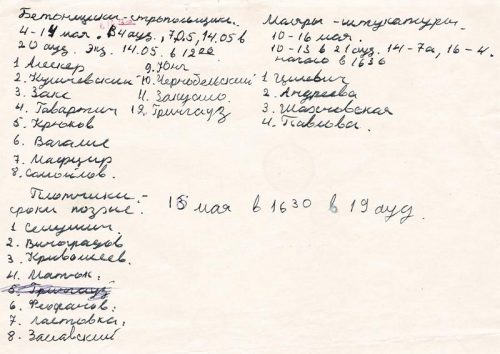 Бетонщики-стропольщики.
4-14 мая. в 4 ауд, 7,05, 14.05 в
20 ауд. Экз. 14.05. в 1200
1 Лескер
2. Кушневский
3. Закс
4. Товартич
5. Крюков
6. Вагалис
7. Мафцир
8. Самойлов
9. Юнг
10. Чернобельский
11. Защало
12. Трингауз
Маляры - штукатуры.
10-16 мая.
10-13 в 21 ауд. 14-7а, 16-4.
начало в 1630
1 Цилевич
2. Андреева
3. Шахновская
4. Павлова.
Плотники.-
сроки позже. 15 мая в 1630 в 19 ауд.
1 Семушин.
2. Виноградов
3. Кривошеев.
4. Матюк.
5. Трингауз
6. Феофанов.
7. Ластовка.
8. Заславский